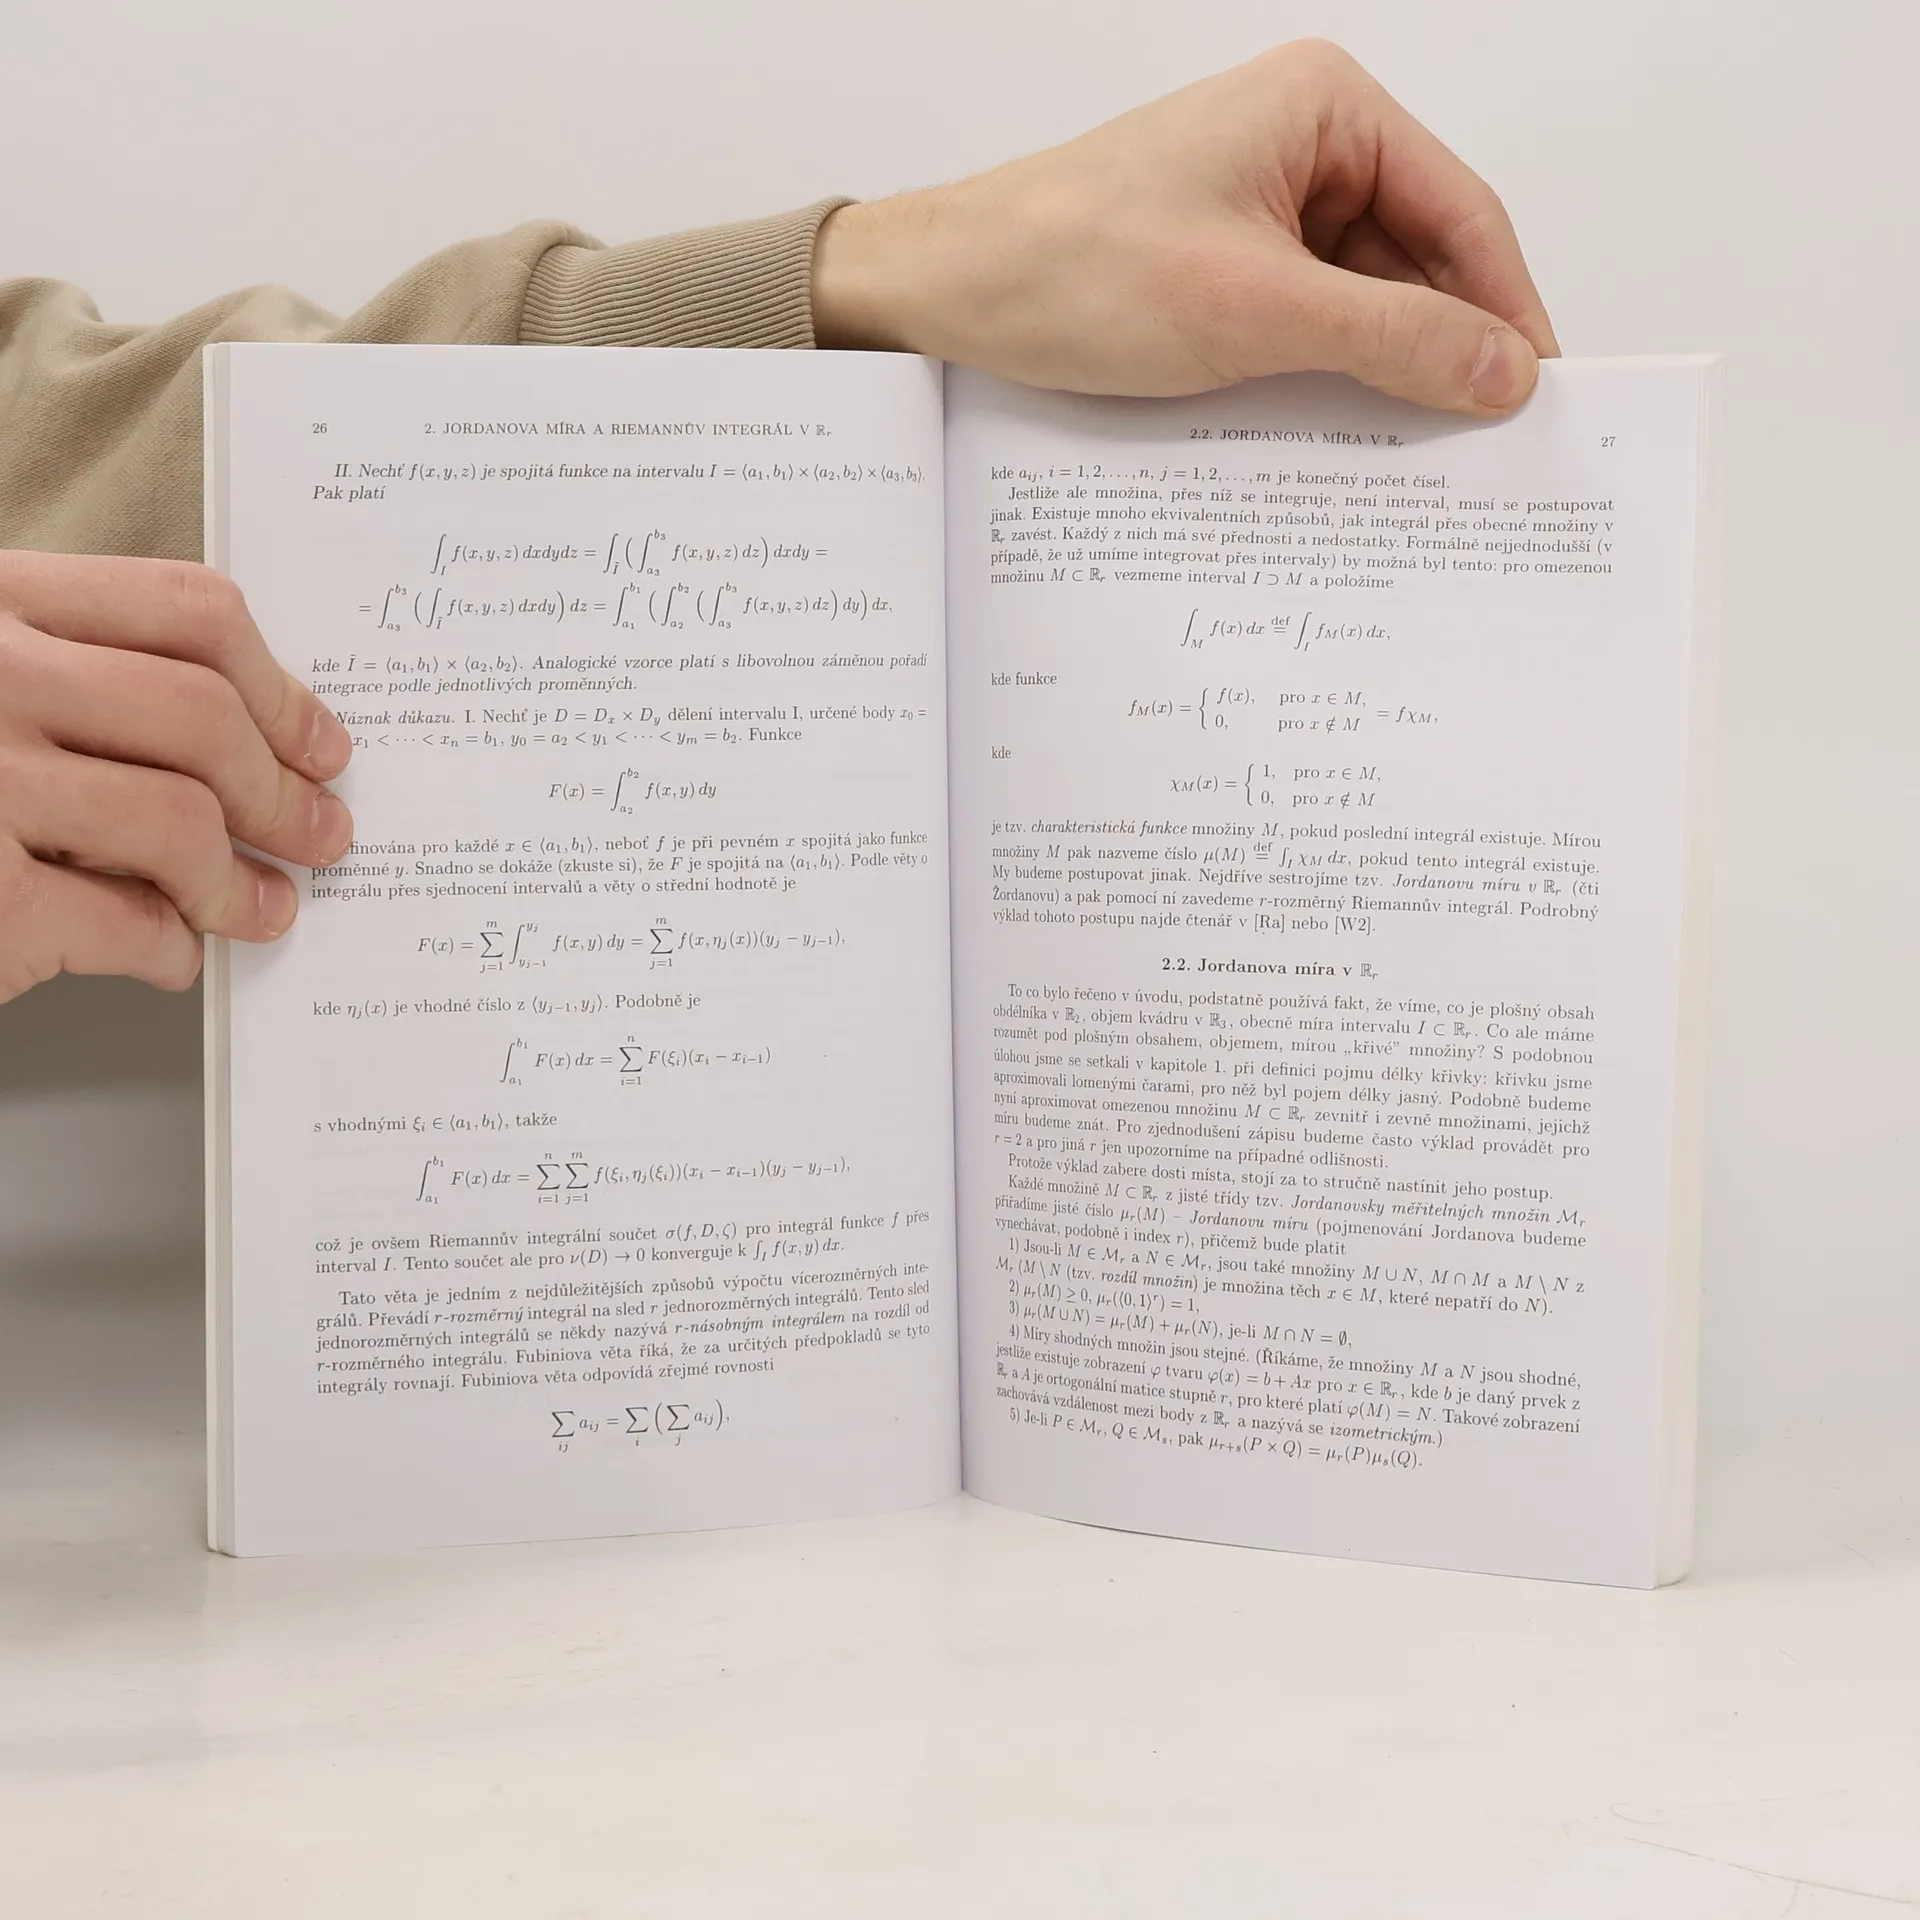 26 2. JORDANOVA MÍRA A RIEMANNŮV INTEGRÁL V ℝᵣ
II. Nechť f(x, y, z) je spojitá funkce na intervalu I = ⟨a₁, b₁⟩ × ⟨a₂, b₂⟩ × ⟨a₃, b₃⟩.
Pak platí
∫_I f(x, y, z) dxdydz = ∫_Ĩ (∫_{a₃}^{b₃} f(x, y, z) dz) dxdy =
= ∫_{a₃}^{b₃} (∫_Ĩ f(x, y, z) dxdy) dz = ∫_{a₁}^{b₁} (∫_{a₂}^{b₂} (∫_{a₃}^{b₃} f(x, y, z) dz) dy) dx,
kde Ĩ = ⟨a₁, b₁⟩ × ⟨a₂, b₂⟩. Analogické vzorce platí s libovolnou záměnou pořadí
integrace podle jednotlivých proměnných.
Náznak důkazu. I. Nechť je D = Dₓ × D_y dělení intervalu I, určené body x₀ =
x₁ < ⋯ < xₙ = b₁, y₀ = a₂ < y₁ < ⋯ < yₘ = b₂. Funkce
F(x) = ∫_{a₂}^{b₂} f(x, y) dy
finována pro každé x ∈ ⟨a₁, b₁⟩, neboť f je při pevném x spojitá jako funkce
proměnné y. Snadno se dokáže (zkuste si), že F je spojitá na ⟨a₁, b₁⟩. Podle věty o
integrálu přes sjednocení intervalů a věty o střední hodnotě je
F(x) = ∑_{j=1}^{m} ∫_{y_{j−1}}^{y_j} f(x, y) dy = ∑_{j=1}^{m} f(x, η_j(x))(y_j − y_{j−1}),
kde η_j(x) je vhodné číslo z ⟨y_{j−1}, y_j⟩. Podobně je
∫_{a₁}^{b₁} F(x) dx = ∑_{i=1}^{n} F(ξ_i)(x_i − x_{i−1})
s vhodnými ξ_i ∈ ⟨a₁, b₁⟩, takže
∫_{a₁}^{b₁} F(x) dx = ∑_{i=1}^{n} ∑_{j=1}^{m} f(ξ_i, η_j(ξ_i))(x_i − x_{i−1})(y_j − y_{j−1}),
což je ovšem Riemannův integrální součet σ(f, D, ζ) pro integrál funkce f přes
interval I. Tento součet ale pro ν(D) → 0 konverguje k ∫_I f(x, y) dx.
Tato věta je jedním z nejdůležitějších způsobů výpočtu vícerozměrných inte-
grálů. Převádí r-rozměrný integrál na sled r jednorozměrných integrálů. Tento sled
jednorozměrných integrálů se někdy nazývá r-násobným integrálem na rozdíl od
r-rozměrného integrálu. Fubiniova věta říká, že za určitých předpokladů se tyto
integrály rovnají. Fubiniova věta odpovídá zřejmé rovnosti
∑_{ij} a_{ij} = ∑_i (∑_j a_{ij}),
2.2. JORDANOVA MÍRA V ℝᵣ 27
kde a_{ij}, i = 1, 2, . . . , n, j = 1, 2, . . . , m je konečný počet čísel.
Jestliže ale množina, přes níž se integruje, není interval, musí se postupovat
jinak. Existuje mnoho ekvivalentních způsobů, jak integrál přes obecné množiny v
ℝᵣ zavést. Každý z nich má své přednosti a nedostatky. Formálně nejjednodušší (v
případě, že už umíme integrovat přes intervaly) by možná byl tento: pro omezenou
množinu M ⊂ ℝᵣ vezmeme interval I ⊃ M a položíme
∫_M f(x) dx ≝ ∫_I f_M(x) dx,
kde funkce
f_M(x) = { f(x), pro x ∈ M,
0, pro x ∉ M = fχ_M,
kde
χ_M(x) = { 1, pro x ∈ M,
0, pro x ∉ M
je tzv. charakteristická funkce množiny M, pokud poslední integrál existuje. Mírou
množiny M pak nazveme číslo μ(M) ≝ ∫_I χ_M dx, pokud tento integrál existuje.
My budeme postupovat jinak. Nejdříve sestrojíme tzv. Jordanovu míru v ℝᵣ (čti
Žordanovu) a pak pomocí ní zavedeme r-rozměrný Riemannův integrál. Podrobný
výklad tohoto postupu najde čtenář v [Ra] nebo [W2].
2.2. Jordanova míra v ℝᵣ
To co bylo řečeno v úvodu, podstatně používá fakt, že víme, co je plošný obsah
obdélníka v ℝ₂, objem kvádru v ℝ₃, obecně míra intervalu I ⊂ ℝᵣ. Co ale máme
rozumět pod plošným obsahem, objemem, mírou „křivé” množiny? S podobnou
úlohou jsme se setkali v kapitole 1. při definici pojmu délky křivky: křivku jsme
aproximovali lomenými čarami, pro něž byl pojem délky jasný. Podobně budeme
nyní aproximovat omezenou množinu M ⊂ ℝᵣ zevnitř i zevně množinami, jejichž
míru budeme znát. Pro zjednodušení zápisu budeme často výklad provádět pro
r = 2 a pro jiná r jen upozorníme na případné odlišnosti.
Protože výklad zabere dosti místa, stojí za to stručně nastínit jeho postup.
Každé množině M ⊂ ℝᵣ z jisté třídy tzv. Jordanovsky měřitelných množin ℳᵣ
přiřadíme jisté číslo μᵣ(M) – Jordanovu míru (pojmenování Jordanova budeme
vynechávat, podobně i index r), přičemž bude platit
1) Jsou-li M ∈ ℳᵣ a N ∈ ℳᵣ, jsou také množiny M ∪ N, M ∩ M a M \ N z
ℳᵣ (M \ N (tzv. rozdíl množin) je množina těch x ∈ M, které nepatří do N).
2) μᵣ(M) ≥ 0, μᵣ(⟨0, 1⟩ʳ) = 1,
3) μᵣ(M ∪ N) = μᵣ(M) + μᵣ(N), je-li M ∩ N = ∅,
4) Míry shodných množin jsou stejné. (Říkáme, že množiny M a N jsou shodné,
jestliže existuje zobrazení φ tvaru φ(x) = b + Ax pro x ∈ ℝᵣ, kde b je daný prvek z
ℝᵣ a A je ortogonální matice stupně r, pro které platí φ(M) = N. Takové zobrazení
zachovává vzdálenost mezi body z ℝᵣ a nazývá se izometrickým.)
5) Je-li P ∈ ℳᵣ, Q ∈ ℳₛ, pak μᵣ₊ₛ(P × Q) = μᵣ(P)μₛ(Q).